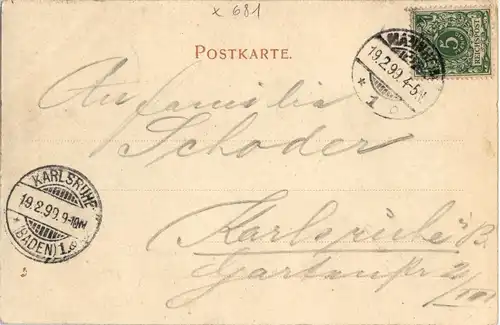 x 681
POSTKARTE.
MANNHEIM
19.2.99.4-5N.
* 1 c
5
REICHSPOST
An Familie
Schoder
Karlsruhe i/B.
Gartenstr
KARLSRUHE
19.2.99.9-10N
* (BADEN) 1.c